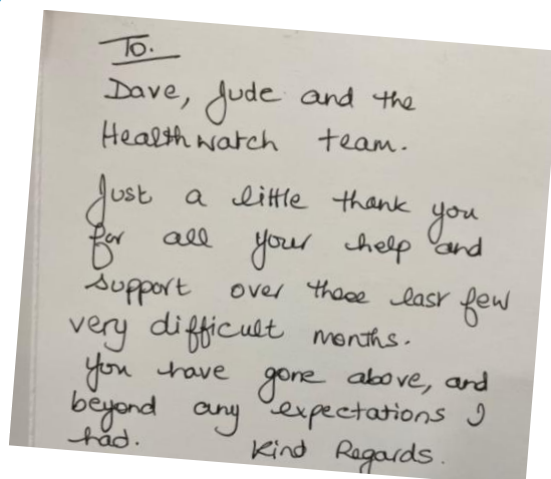 To.
Dave, Jude and the
Healthwatch team.
Just a little thank you
for all your help and
support over these last few
very difficult months.
You have gone above, and
beyond any expectations I
had. Kind Regards.